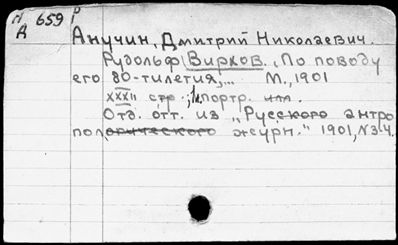 N 659 P
A
Анучин, Дмитрий Николаевич.
Рудольф Вирхов. По поводу
его 80-тилетия;... М., 1901
XXXII стр.; 1 портр. илл.
Отд. отт. из „Русского антро
пологического журн." 1901, N 3-4.